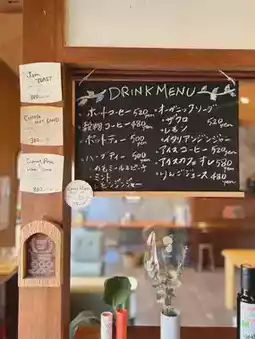 DRINK MENU
・ホットコーヒー 520yen
・穀物コーヒー 480yen
・ポットティー 500yen
・ハーブティー 500yen
ミント
レモンジンジャー
・オーガニックソーダ
・ザクロ
・レモン
・イタリアンジンジャー
・アイスコーヒー 520yen
・アイスカフェオレ 580yen
・りんごジュース 480yen
Jam
TOAST